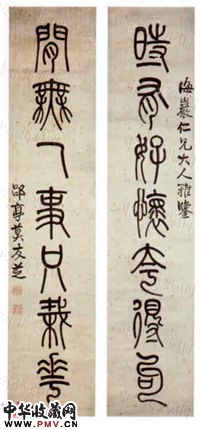 海巖仁兄大人雅鑒
時有好懷得句
閒無人事只栽華
郘亭莫友芝
中华收藏网
www.PMV.cn